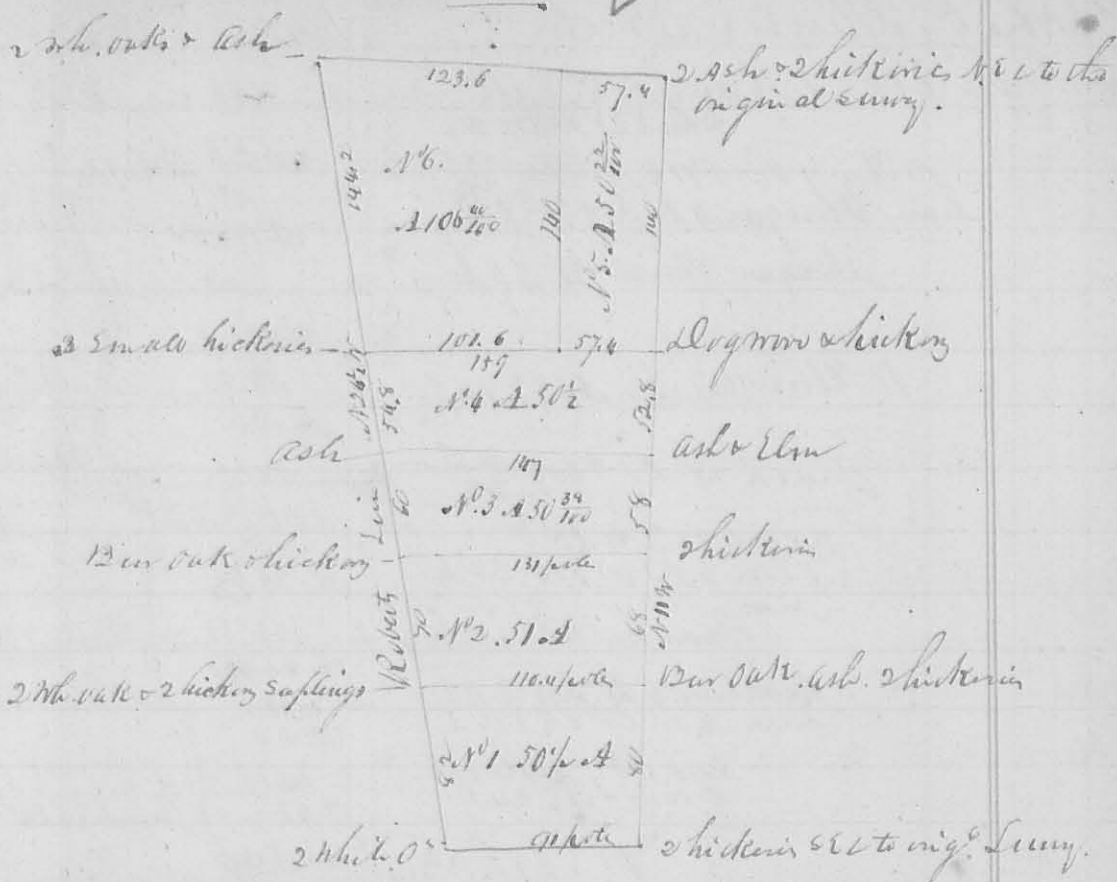 2 Wh. oaks & Ash
123.6
57.4
2 Ash & 2 hickories N. E C to the
original Survey.
144.2
No 6.
A 106
140
No 5. A 50 22/100
140
3 Small hickories
101.6
57.4
Dogwood & hickory
159
54.8
No 4 A 50 1/2
52.8
Ash
147
Ash & Elm
60
No 3 A 50 39/100
58
Bur oak & hickory
131 poles
2 hickories
Roberts Line
70
No 2. 51 A
68
N 11 W
2 Wh. oak & 2 hickory Saplings
110.4 poles
Bur Oak. Ash. 2 hickories
82
No 1 50 1/2 A
80
2 White Os
91 poles
2 hickories S E C to origl. Survey.